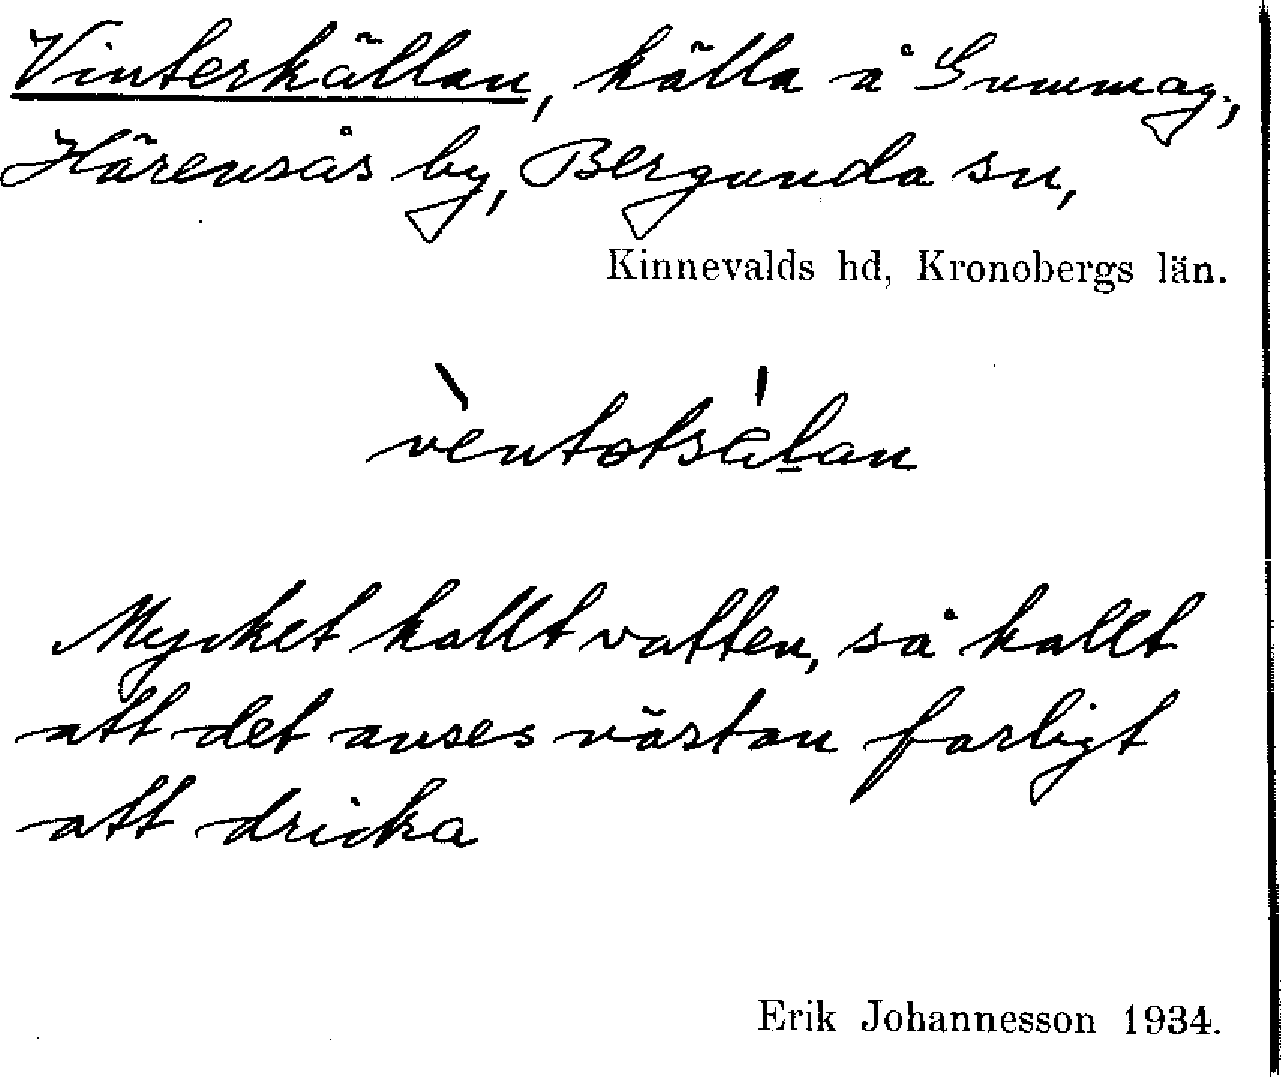 Vinterkällan, källa å Gummag.,
Härensås by, Bergunda sn,
Kinnevalds hd, Kronobergs län.
vèntətsálan
Mycket kallt vatten, så kallt
att det anses nästan farligt
att dricka
Erik Johannesson 1934.